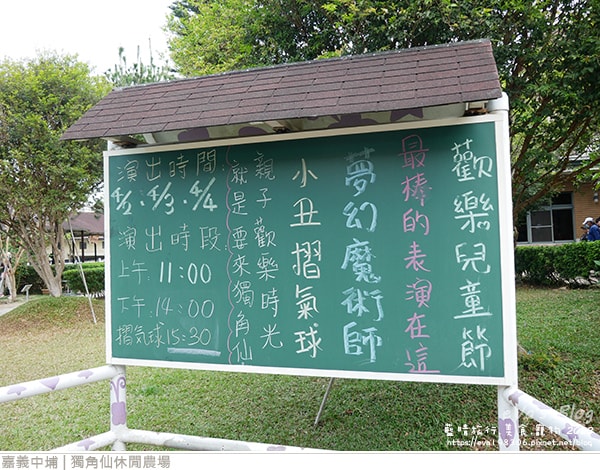 歡樂兒童節
最棒的表演在這
夢幻魔術師
小丑摺氣球
親子歡樂時光
就是要來獨角仙
演出時間
4/2.4/3.4/4
演出時段
上午 11:00
下午 14:00
摺氣球15:30
藍晴旅行 美食 寵物
嘉義中埔 | 獨角仙休閒農場